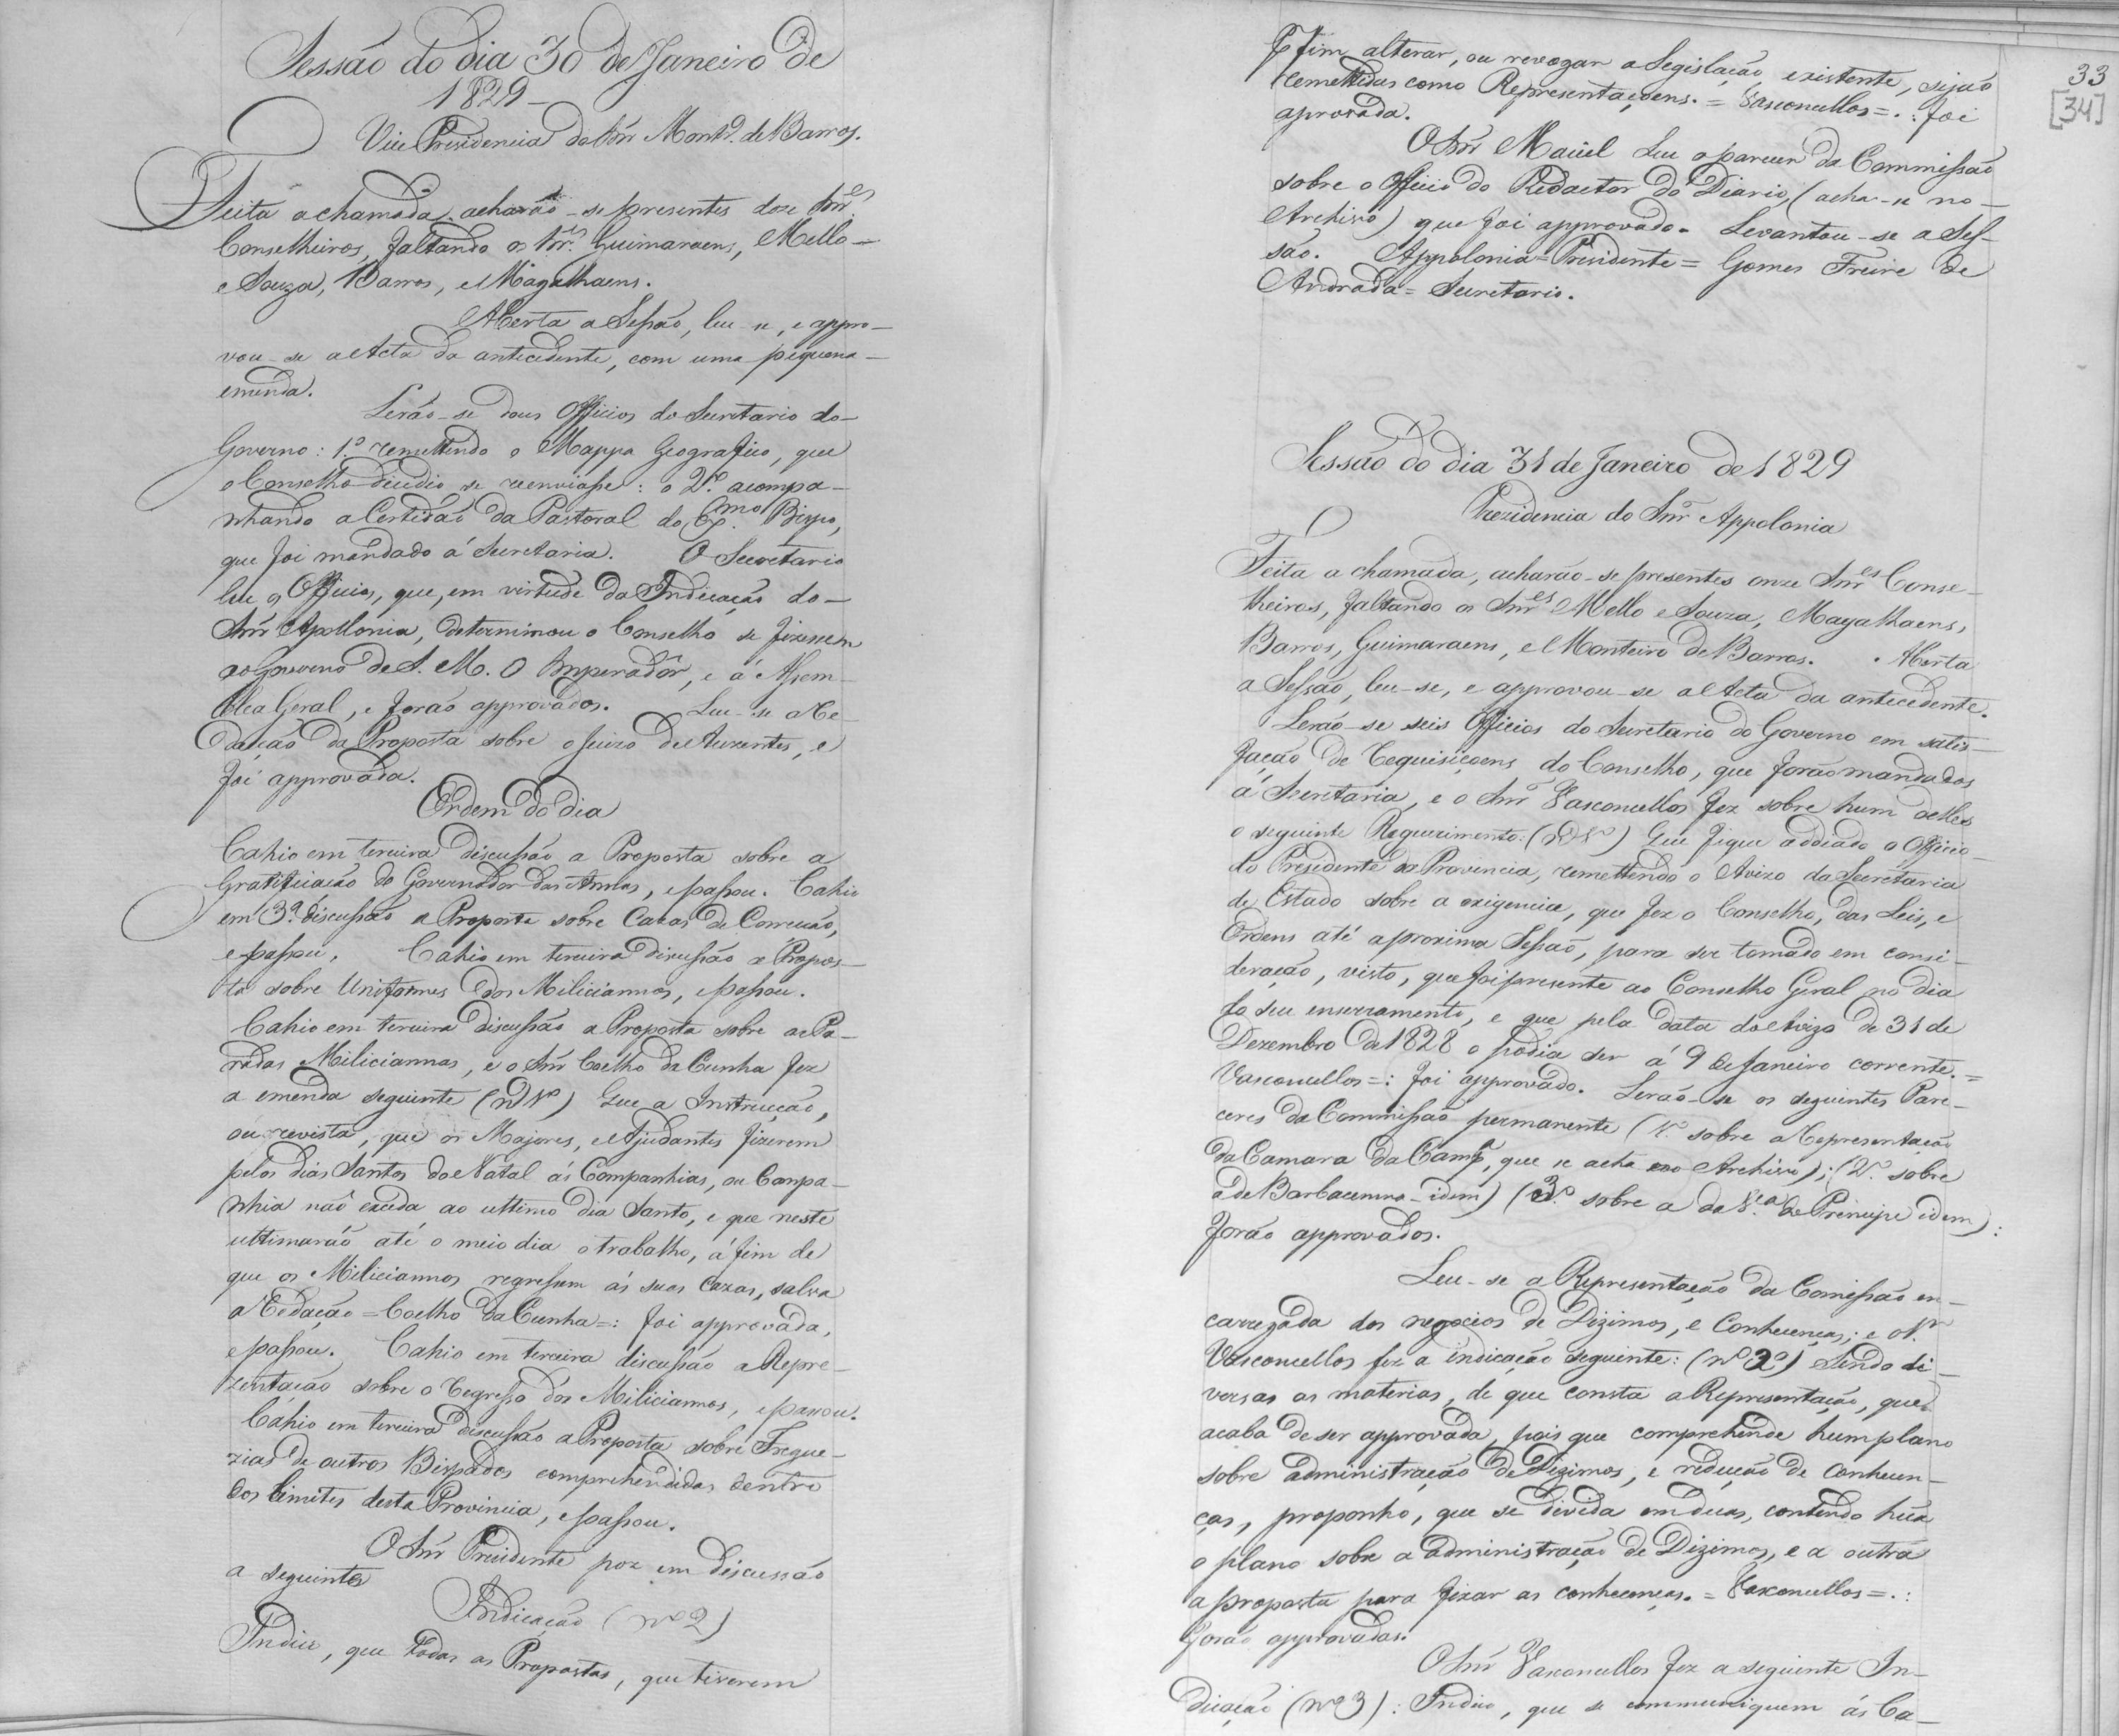 Sessão do dia 30 de Janeiro de
1829 —
Vice Presidencia do Snr Montr.º de Barros.
Feita a chamada, acharão-se presentes doze Snr.es
Conselheiros, faltando os Snr.es Guimaraens, Mello —
e Souza, Barros, e Magalhaens.
Aberta a Sessão, leu-se, e appro-
vou-se a Acta da antecedente, com uma pequena —
emenda.
Lerão-se dous Officios do Secretario do —
Governo: 1.º remettendo o Mappa Geografico, que
o Conselho decidio se reenviasse: o 2.º acompa-
nhando a Certidão da Pastoral do Ex.mo Bispo,
que foi mandado á Secretaria. O Secretario
leu os Officios, que, em virtude da Indicação do —
Snr Apollonia, determinou o Conselho se fizessem
ao Governo de S. M. O Imperador, e á Assem-
blea Geral, e forão approvados. Leu-se a Re-
dação da Proposta sobre o Juizo de Auzentes, e
foi approvada.
Ordem do dia
Cahio em terceira discussão a Proposta sobre a
Gratificação do Governador das Armas, e passou. Cahio
em 3.ª discussão a Proposta sobre Cazas de Correcção,
e passou. Cahio em terceira discussão a Propos-
ta sobre Uniformes dos Miliciannos, e passou.
Cahio em terceira discussão a Proposta sobre as Pa-
radas Miliciannas, e o Snr Coelho da Cunha fez
a emenda seguinte (N.º 1.º) Que a Instrucção,
ou revista, que os Majores, e Ajudantes fizerem
pelos dias Santos do Natal ás Companhias, ou Compa-
nhia não exceda ao ultimo dia Santo, e que neste
ultimarão até o meio dia o trabalho, á fim de
que os Miliciannos regressem ás suas Cazas, salva
a Redação = Coelho da Cunha =: foi approvada,
e passou. Cahio em terceira discussão a Repre-
zentação sobre o regresso dos Miliciannos, e passou.
Cahio em terceira discussão a Proposta sobre Fregue-
zias de outros Bispados comprehendidas dentro
dos Limites desta Provincia, e passou.
O Snr Presidente poz em discussão
a seguinte
Indicação (Nº 2)
Indico, que todas as Propostas, que tiverem
33
[34]
P.r fim alterar, ou revogar a Legislação existente, sejão
remettidas como Representaçoens. = Vasconcellos =.: foi
aprovada.
O Snr Maciel leu o parecer da Commissão
sobre o Officio do Redactor do Diario, (acha-se no —
Archivo) que foi approvado. Levantou-se a Ses-
são. Appolonia = Presidente = Gomes Freire de
Andrada = Secretario.
Sessão do dia 31 de Janeiro de 1829
Prezidencia do Snr Appolonia
Feita a chamada, acharão-se presentes onze Snr.es Conse-
lheiros, faltando os Snr.es Mello e Souza, Magalhaens,
Barros, Guimaraens, e Monteiro de Barros. Aberta
a Sessão, leu-se, e approvou-se a Acta da antecedente.
Lerão-se seis Officios do Secretario do Governo em satis-
fação de requisiçoens do Conselho, que forão mandados
á Secretaria, e o Snr Vasconcellos fez sobre hum delles
o seguinte Requerimento: (N.º 1.º) Que fique addiado o Officio
do Presidente da Provincia, remettendo o Avizo da Secretaria
de Estado sobre a exigencia, que fez o Conselho, das Leis, e
Ordens até a proxima Sessão, para ser tomado em consi-
deração, visto, que foi presente ao Conselho Geral no dia
do seu encerramento, e que pela data do Avizo de 31 de
Dezembro de 1828 o podia ser á 9 de Janeiro corrente. =
Vasconcellos =: foi approvado. Lerão-se os seguintes Pare-
ceres da Commissão permanente (1.º sobre a Representação
da Camara da Camp.ª, que se acha no Archivo); (2.º sobre
a de Barbacenna — idem) (3.º sobre a da V.ª do Principe idem):
forão approvados.
Leu-se a Representação da Comissão en-
carregada dos negocios de Dizimos, e Conhecenças; e o S.r
Vasconcellos fez a indicação seguinte: (Nº 2º) Sendo di-
versas as materias, de que consta a Representação, que
acaba de ser approvada, pois que comprehende hum plano
sobre administração de Dizimos, e redução de conhecen-
ças, proponho, que se divida em duas, contendo hũa
o plano sobre a administração de Dizimos, e a outra
a proposta para fixar as conhecenças. = Vasconcellos =.:
forão approvadas.
O Snr Vasconcellos fez a seguinte In-
dicação (Nº 3): Indico, que se communiquem ás Ca-